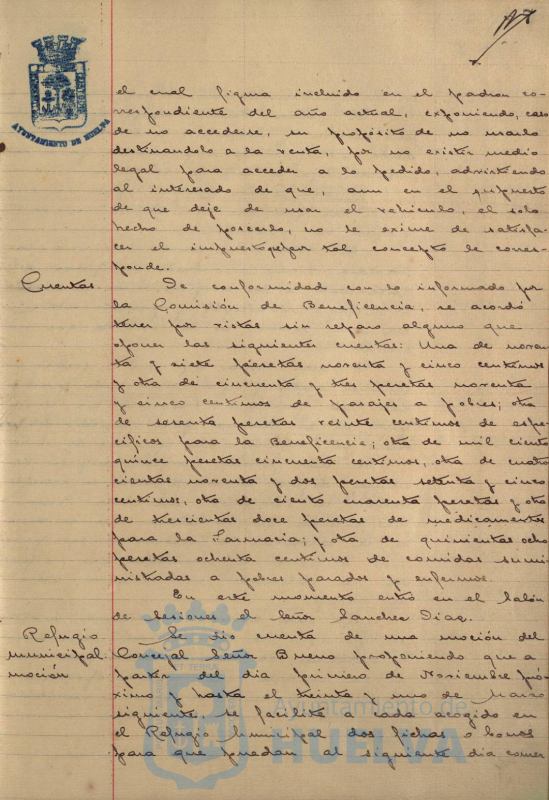 el cual figura incluido en el padron co-
rrespondiente del año actual, exponiendo, caso
de no accederse, su propósito de no usarlo
destinandolo a la venta, por no existir medio
legal para acceder a lo pedido, advirtiendo
al interesado de que, aun en el supuesto
de que deje de usar el vehiculo, el solo
hecho de poseerlo, no le exime de satisfa-
cer el impuesto que por tal concepto le corres-
ponde.
Cuentas
De conformidad con lo informado por
la Comisión de Beneficencia, se acordó
tener por vistas sin reparo alguno que
oponer las siguientes cuentas: Una de noven-
ta y siete pesetas noventa y cinco centimos
y otra de cincuenta y tres pesetas noventa
y cinco centimos de pasajes a pobres; otra
de sesenta pesetas veinte centimos de espe-
cificos para la Beneficencia; otra de mil ciento
quince pesetas cincuenta centimos, otra de cuatro
cientas noventa y dos pesetas setenta y cinco
centimos, otra de ciento cuarenta pesetas y otra
de trescientas doce pesetas de medicamentos
para la Farmacia; y otra de quinientas ocho
pesetas ochenta centimos de comidas sumi-
nistradas a pobres parados y enfermos.
En este momento entró en el Salón
de sesiones el Señor Sanchez Diaz.
Refugio
municipal.
moción
Se dio cuenta de una moción del
Concejal Señor Bueno proponiendo que a
partir del dia primero de Noviembre pró-
ximo y hasta el treinta y uno de Marzo
siguiente, se facilite a cada acogido en
el Refugio Municipal dos fichas o bonos
para que puedan al siguiente dia comer
AYUNTAMIENTO DE HUELVA
Ayuntamiento de
HUELVA